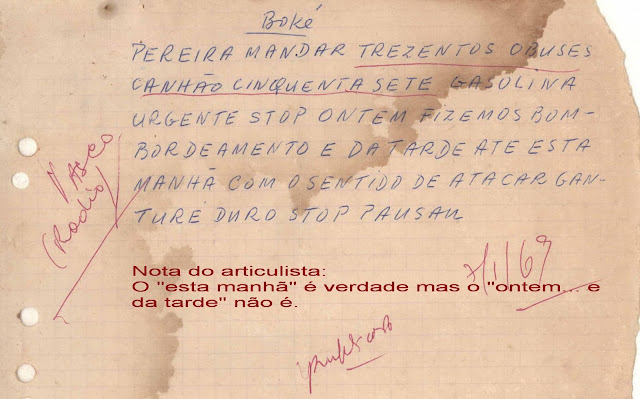 Boké
PEREIRA MANDAR TREZENTOS OBUSES
CANHÃO CINQUENTA SETE GASOLINA
URGENTE STOP ONTEM FIZEMOS BOM-
BORDEAMENTO E DATARDE ATE ESTA
MANHÃ COM O SENTIDO DE ATACAR GAN-
TURE DURO STOP PAUSAU
VASCO
(Radio)
7/1/69
Nota do articulista:
O "esta manhã" é verdade mas o "ontem... e
da tarde" não é.